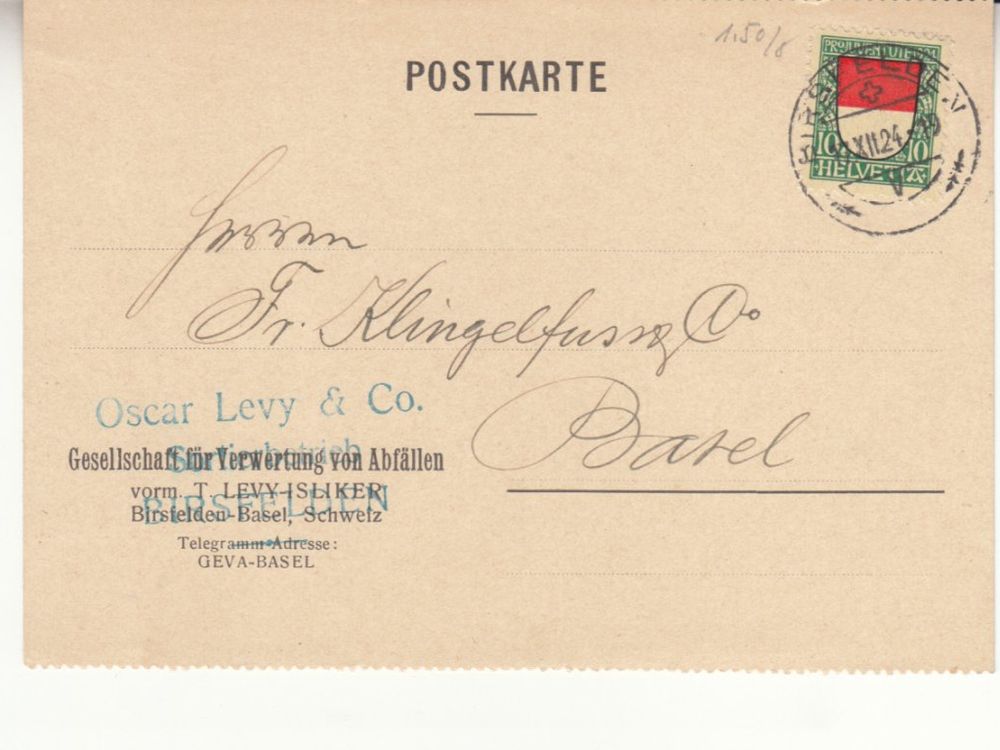 1.50/8
POSTKARTE
PRO JUVENTUTE 1924
10 10
HELVETIA
BIRSFELDEN
XII.24
V
Herren
Fr. Klingelfuss & Co
Basel
Oscar Levy & Co.
Sortierbetrieb
BIRSFELDEN
Gesellschaft für Verwertung von Abfällen
vorm. T. LEVY-ISLIKER
Birsfelden-Basel, Schweiz
Telegramm-Adresse:
GEVA-BASEL